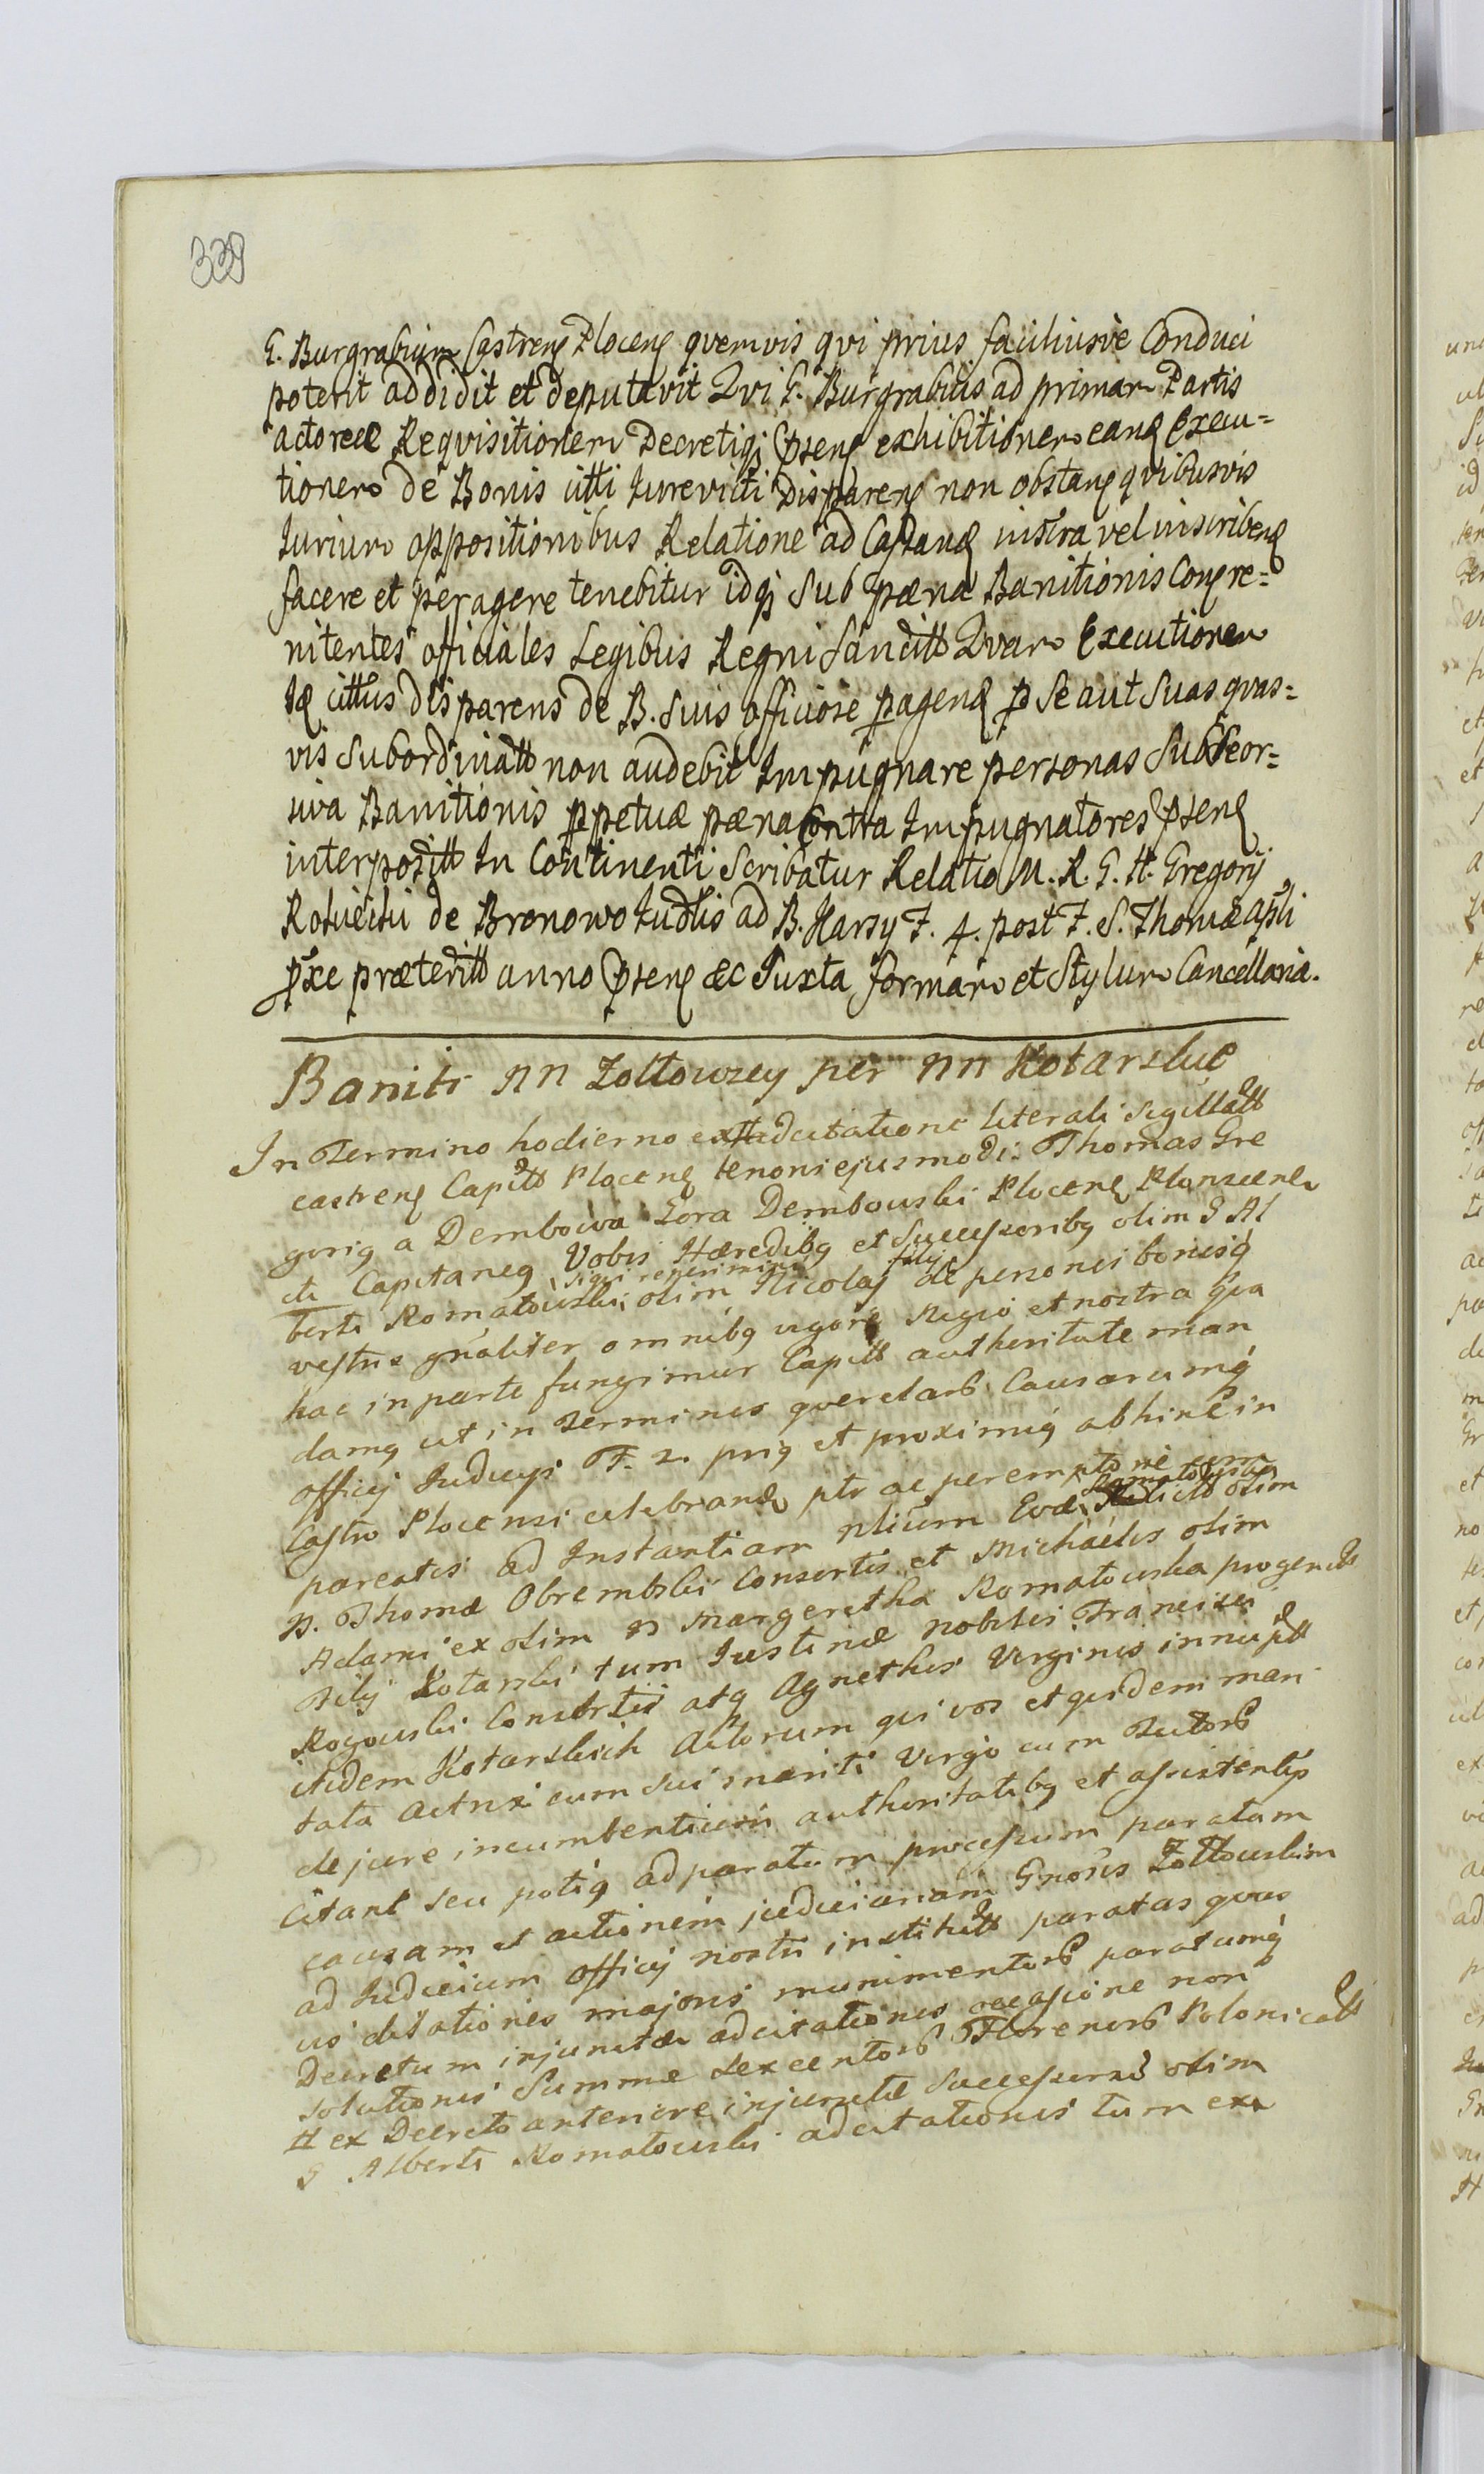 339
G. Burgrabium Castren Plocen quemvis qvi prius faciliusve Conduci
poterit addidit et deputavit Qvi G. Burgrabius ad primam Partis
actoreæ Reqvisitionem Decretiqz psen exhibitionem eand Execu=
tionem de Bonis citti Jurevicti Disparen non obstan qvibusvis
Jurium oppositionibus Relatione ad Capdand inscra vel inscribend
facere et peragere tenebitur idqz Sub pæna Banitionis Con re=
nitentes officiales Legibus Regni Sancitt Qvam Executionem
Id cittus disparens de B. Suis officiose pagend p Se aut Suas qvas=
vis Subordinatt non audebit Impugnare personas Sub Seor=
siva Banitionis ppetuæ pæna Contra Impugnatores psen
interpositt In Continenti Scribatur Relatio M. R. G. H. Gregorij
Rościcki de Bronowo Judlis ad B. Karsy F. 4. post F. S. Thomæ apli
pxe præteritt anno psen &c Juxta formam et Stylum Cancellariæ.
Banits nn Zołtowscy per nn Kotarskie
In Termino hodierno ex adcitatione literali sigillatt
castren Capitt Plocen tenoris ejusmodi: Thomas Gre
gorig a Dembowa Gora Dembowski Plocen Plonscen
cti Capitaneg Vobis Hæredibg et Successoribg olim G Al
berti Romatowski siqui reperimini olim Nicolaj filij de personis bonisq
vestris gnaliter omnibg vigore Regio et nostra qua
hac in parte fungimur Capitt authoritate man
damg ut in Terminis querelarb Causarumq
officij Judicyi F. 2. prig et proximig abhinc in
Castro Plocensi celebrand ptr ac peremptorie com
pareatis ad Instantiam nlium Evæ Romatowski olim
N. Thomæ Obrembski Consortis et Michaelis olim
Adami ex olim N Margeretha Romatowska progenitt
Filij Kotarski tum Justinæ nobilis Francisci
Rogowski Consortis atq Agnethis Virginis innuptt
itidem Kotarskich Actorum qui vos et quidem mari
tata Actrix cum sui mariti Virgo cum Tutorb
de jure incumbentium authoritatibg et assistentijs
Citant seu potig ad paratum processum paratam
causam et actionem judiciariam Gnosis Zołtowskim
ad Judicium officij nostri institutt paratas quas
vis citationes majoris munimentorb paratumq
Decretum injunctæ adcitationis occasione non
solutionis Summæ sexcentorb Florenorb Polonicalt
tt ex Decreto anteriore injunctæ Successorib olim
G Alberti Romatowski adcitationis tum ex